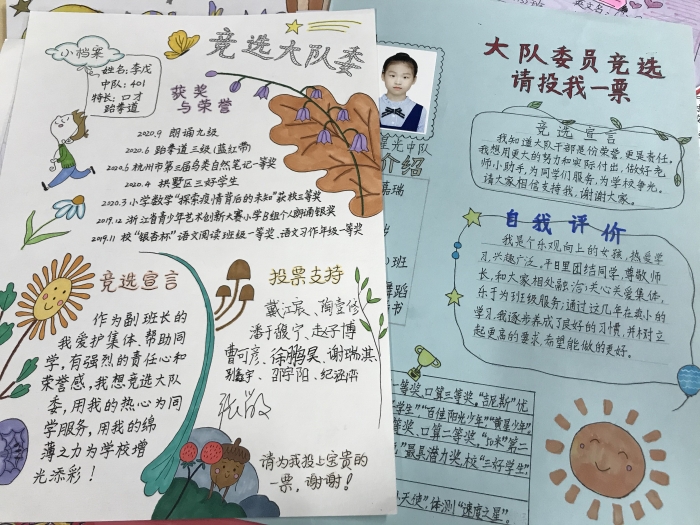 竞选大队委
小档案
姓名:李戊
中队:401
特长:口才
跆拳道
获奖
与荣誉
2020.9 朗诵九级
2020.6 跆拳道三级(蓝红带)
2020.5 杭州市第三届鸟类自然笔记一等奖
2020.4 拱墅区三好学生
2020.3 小学数学“探索疫情背后的未知”获校三等奖
2019.12 浙江省青少年艺术创新大赛小学B组个人朗诵银奖
2019.11 校“银杏杯”语文阅读班级一等奖、语文习作年级一等奖
竞选宣言
作为副班长的
我爱护集体、帮助同
学,有强烈的责任心和
荣誉感,我想竞选大队
委,用我的热心为同
学服务,用我的绵
薄之力为学校增
光添彩!
投票支持
戴江宸、陶萱修
潘于馥宁、赵子博
曹可彦、徐鹏昊、谢瑞淇
邵宇阳、纪
请为我投上宝贵的
一票,谢谢!
大队委员竞选
请投我一票
星光中队
介绍
嘉瑞
班
舞蹈
书
竞选宣言
我知道大队干部是份荣誉,更是责任。
我想用更大的努力和实际付出,做好老
师小助手,为同学们服务,为学校争光。
请大家相信支持我。谢谢大家。
自我评价
我是个乐观向上的女孩,热爱学
习,兴趣广泛。平日里团结同学,尊敬师
长,和大家相处融洽;关心关爱集体,
乐于为班级服务;通过这几年在卖小的
学习,我逐步养成了良好的习惯,并树立
起更高的要求,希望能做的更好。
一等奖,口算三等奖,“吉尼斯”优
学生”“百佳阳光少年”“黄星少年”
等奖、口算二等奖,“50米”第二
“最具潜力奖,校“三好学生”
小天使”,体测“速度之星”